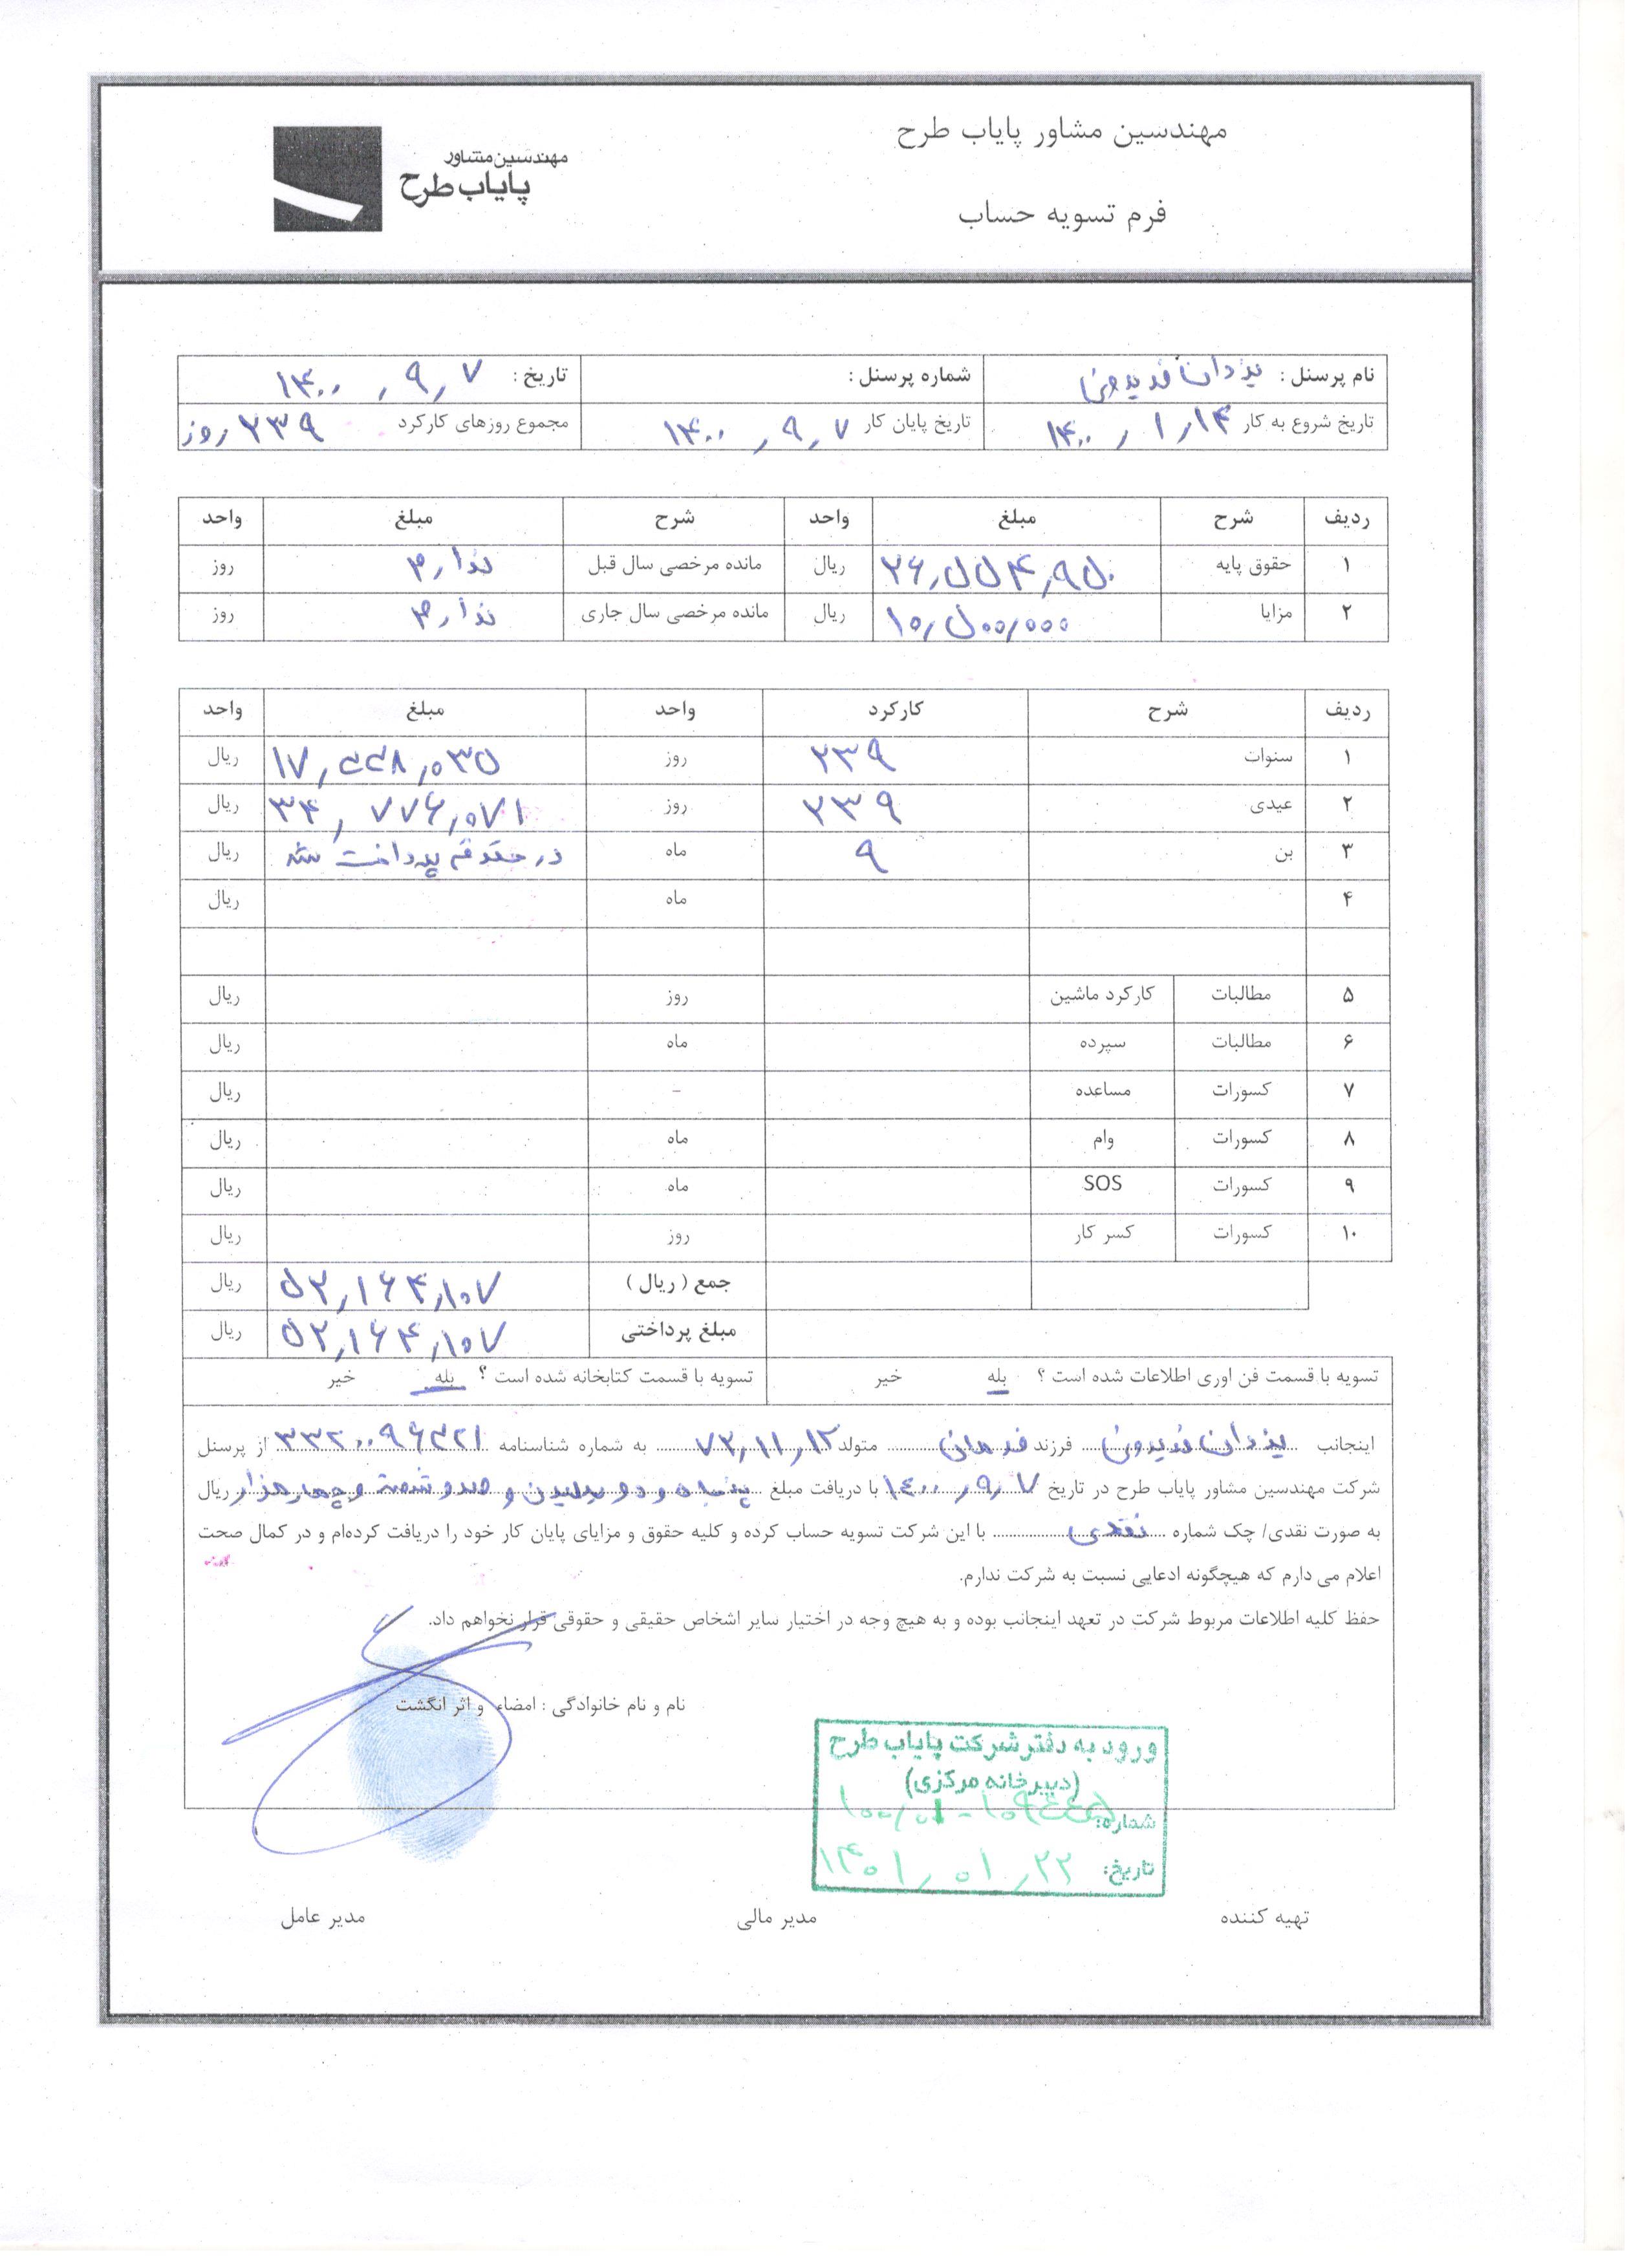 مهندسین مشاور پایاب طرح
مهندسین مشاور
پایاب طرح
فرم تسویه حساب
نام پرسنل : یزدان فریدونی شماره پرسنل : تاریخ : ۱۴۰۰/۹/۷
تاریخ شروع به کار ۱۴۰۰/۱/۱۴ تاریخ پایان کار ۱۴۰۰/۹/۷ مجموع روزهای کارکرد ۲۳۹ روز
ردیف شرح مبلغ واحد شرح مبلغ واحد
۱ حقوق پایه ۲۶,۵۵۴,۹۵۰ ریال مانده مرخصی سال قبل ندارم روز
۲ مزایا ۱۰,۵۰۰,۰۰۰ ریال مانده مرخصی سال جاری ندارم روز
ردیف شرح کارکرد واحد مبلغ واحد
۱ سنوات ۲۳۹ روز ریال
۲ عیدی ۲۳۹ روز ۳۴,۷۷۶,۰۷۱ ریال
۳ بن ۹ ماه در حقوقم پرداخت شد ریال
۴ ماه ریال
۵ مطالبات کارکرد ماشین روز ریال
۶ مطالبات سپرده ماه ریال
۷ کسورات مساعده - ریال
۸ کسورات وام ماه ریال
۹ کسورات SOS ماه ریال
۱۰ کسورات کسر کار روز ریال
جمع ( ریال ) ۵۲,۱۶۴,۱۰۷ ریال
مبلغ پرداختی ۵۲,۱۶۴,۱۰۷ ریال
تسویه با قسمت فن اوری اطلاعات شده است ؟ بله خیر تسویه با قسمت کتابخانه شده است ؟ بله خیر
اینجانب یزدان فریدونی فرزند فرمان متولد ۷۳,۱۱,۱۲ به شماره شناسنامه از پرسنل
شرکت مهندسین مشاور پایاب طرح در تاریخ ۱۴۰۰/۹/۷ با دریافت مبلغ پنجاه و دو میلیون و صد و شصت و چهار هزار ریال
به صورت نقدی/ چک شماره نقدی با این شرکت تسویه حساب کرده و کلیه حقوق و مزایای پایان کار خود را دریافت کرده‌ام و در کمال صحت
اعلام می دارم که هیچگونه ادعایی نسبت به شرکت ندارم.
حفظ کلیه اطلاعات مربوط شرکت در تعهد اینجانب بوده و به هیچ وجه در اختیار سایر اشخاص حقیقی و حقوقی قرار نخواهم داد.
نام و نام خانوادگی : امضاء و اثر انگشت
ورود به دفتر شرکت پایاب طرح
(دبیرخانه مرکزی)
شماره:
تاریخ: ۱۴۰۱/۰۱/۲۲
تهیه کننده مدیر مالی مدیر عامل